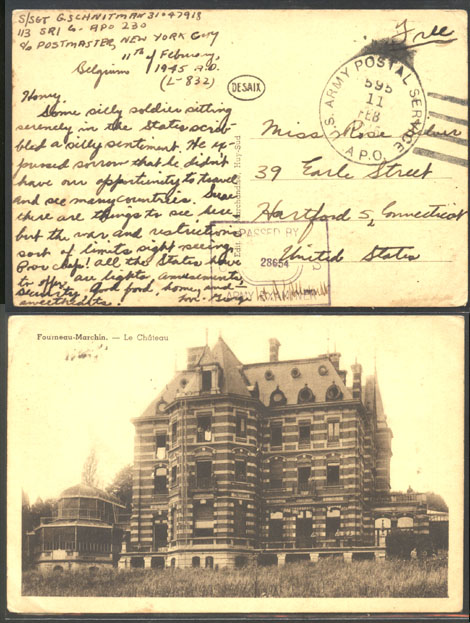 S/Sgt G. SCHNITMAN 31047918
113 SRI Co. APO 230
c/o POSTMASTER, NEW YORK City
11th of February,
Belgium 1945 A.D.
(L-832)
Free
U.S. ARMY POSTAL SERVICE
595
11
FEB
A.P.O.
DESAIX
Honey,
Some silly soldier sitting
serenely in the States scrib-
bled a silly sentiment. He ex-
pressed sorrow that he didn't
have our opportunity to travel
and see many countries. Sure
there are things to see here
but the war and restrictions
sort of limits sight-seeing.
Poor chap! all the States have
to offer are lights, amusements,
security, good food, home, and
sweethearts.
Miss Rose
39 Earle Street
Hartford 5, Connecticut
United States
PASSED BY
28654
ARMY
Fourneau-Marchin. — Le Château